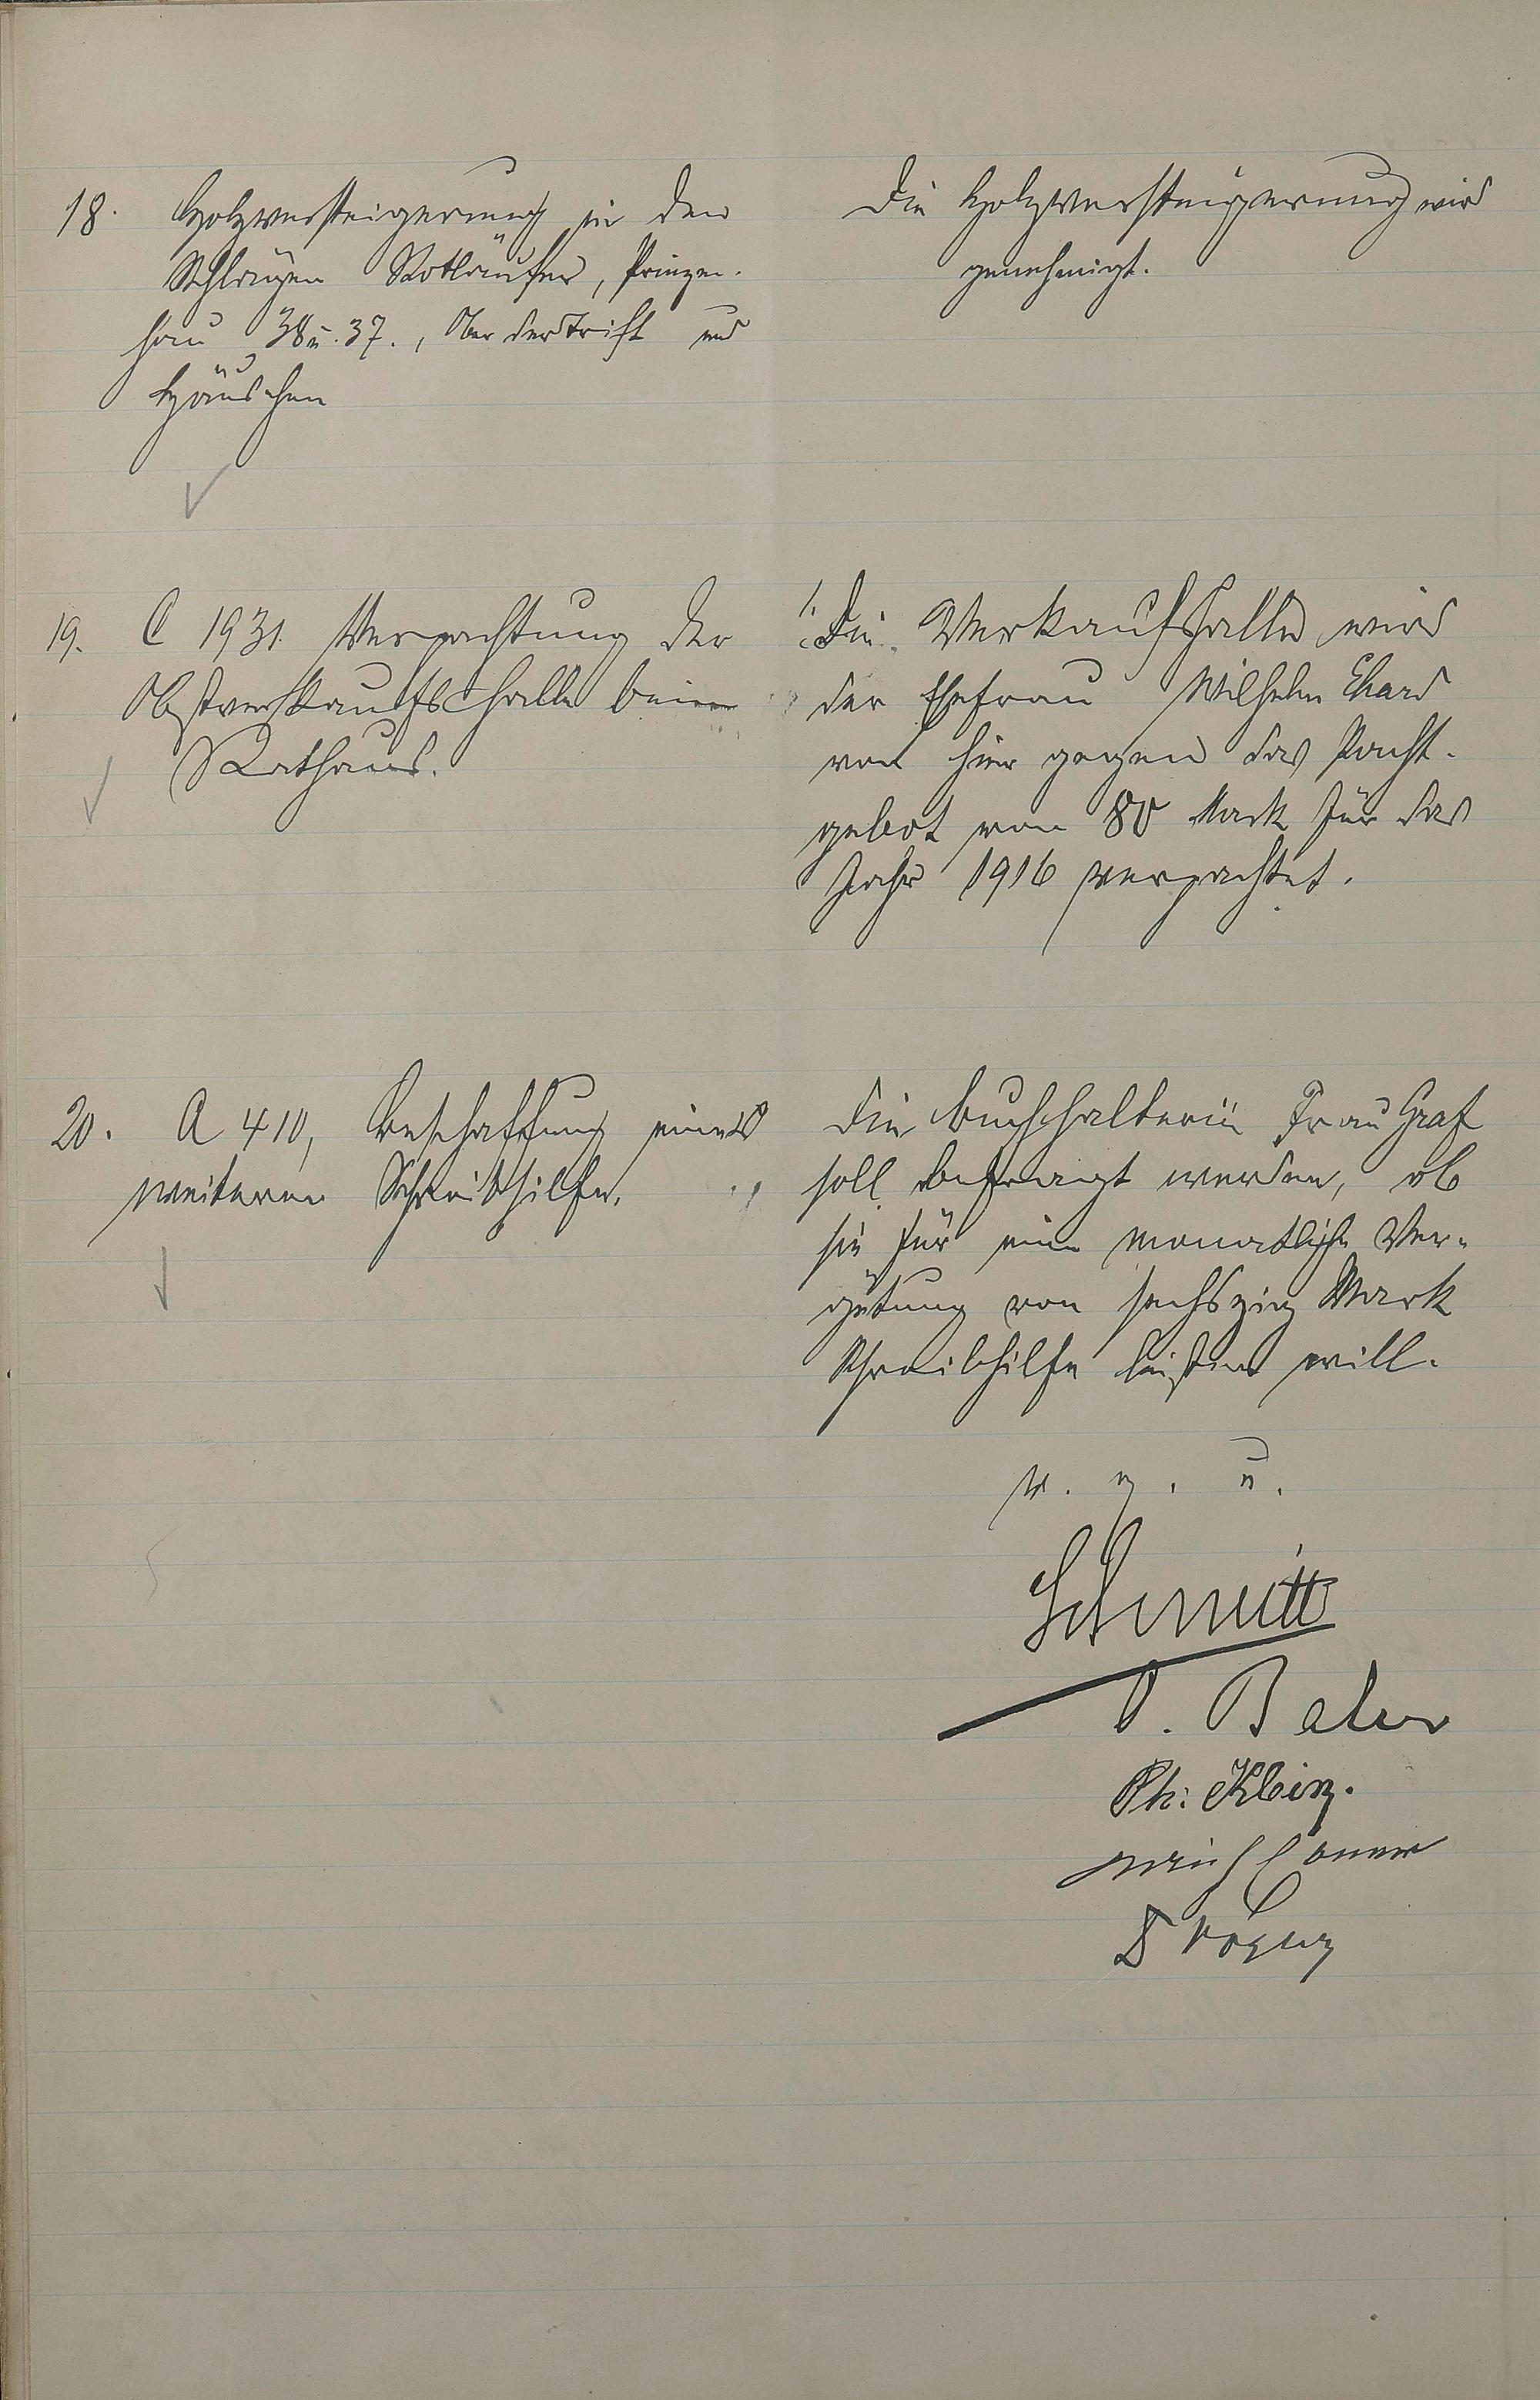 18. Holzversteigerung in den
Schlägen Rotläufer, Prinzen-
hau 38 u. 37., Ober der Trift und
Häuschen
Die Holzversteigerung wird
genehmigt.
19. C 1931. Verpachtung der
Obstverkaufshalle beim
Rathaus.
1. Die Verkaufshalle wird
der Ehefrau Wilhelm Ehard
von hier gegen das Pacht-
gebot von 80 Mark für das
Jahr 1916 verpachtet.
20. A 410, Beschaffung eines
weiteren Schreibhilfe.
Die Buchhalterin Frau Graf
soll befragt werden, ob
sie für eine monatliche Ver-
gütung von sechszig Mark
Schreibhilfe leisten will.
v. g. u.
Schmitt
Ph. Klein.